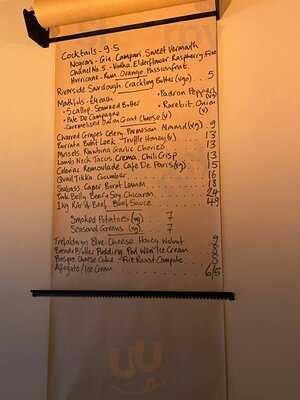 Cocktails - 9.5
Negroni - Gin, Campari Sweet Vermouth
Chanel No.5 - Vodka Elderflower Raspberry Fizz
Hurricane - Rum, Orange, Passionfruit
Riverside Sourdough, Crackling Butter (vgo) 5
Mouthfuls - £4 each
• Padron Peppers (vg)
• Scallop, Seaweed Butter
• Rarebit, Onion (v)
• Pate De Campagne
• Caramelised Onion Goat Cheese (v)
Charred Grapes Celery, Parmesan, Almond (vg) 9
Burrata Burnt Leek Truffle Honey (v) 13
Mussels Chorizo 13
Lambs Neck Tacos Crema, Chilli Crisp 13
Celeriac Remoulade Cafe De Paris (vg) 15
Quail Tikka Cucumber 16
Seabass Caper Burnt Lemon 18
Pork Belly, Bean & Soy Chicharon 24
1kg Rib 'o' Beef, Basil Sauce 49
Smoked Potatoes (vg) 7
Seasonal Greens (vg) 7
Blue Cheese Honey Walnut
Bread & Butter Pudding Ice Cream
Basque Cheese Cake - Fire Roast Compote
Affogato / Ice Cream 6/5